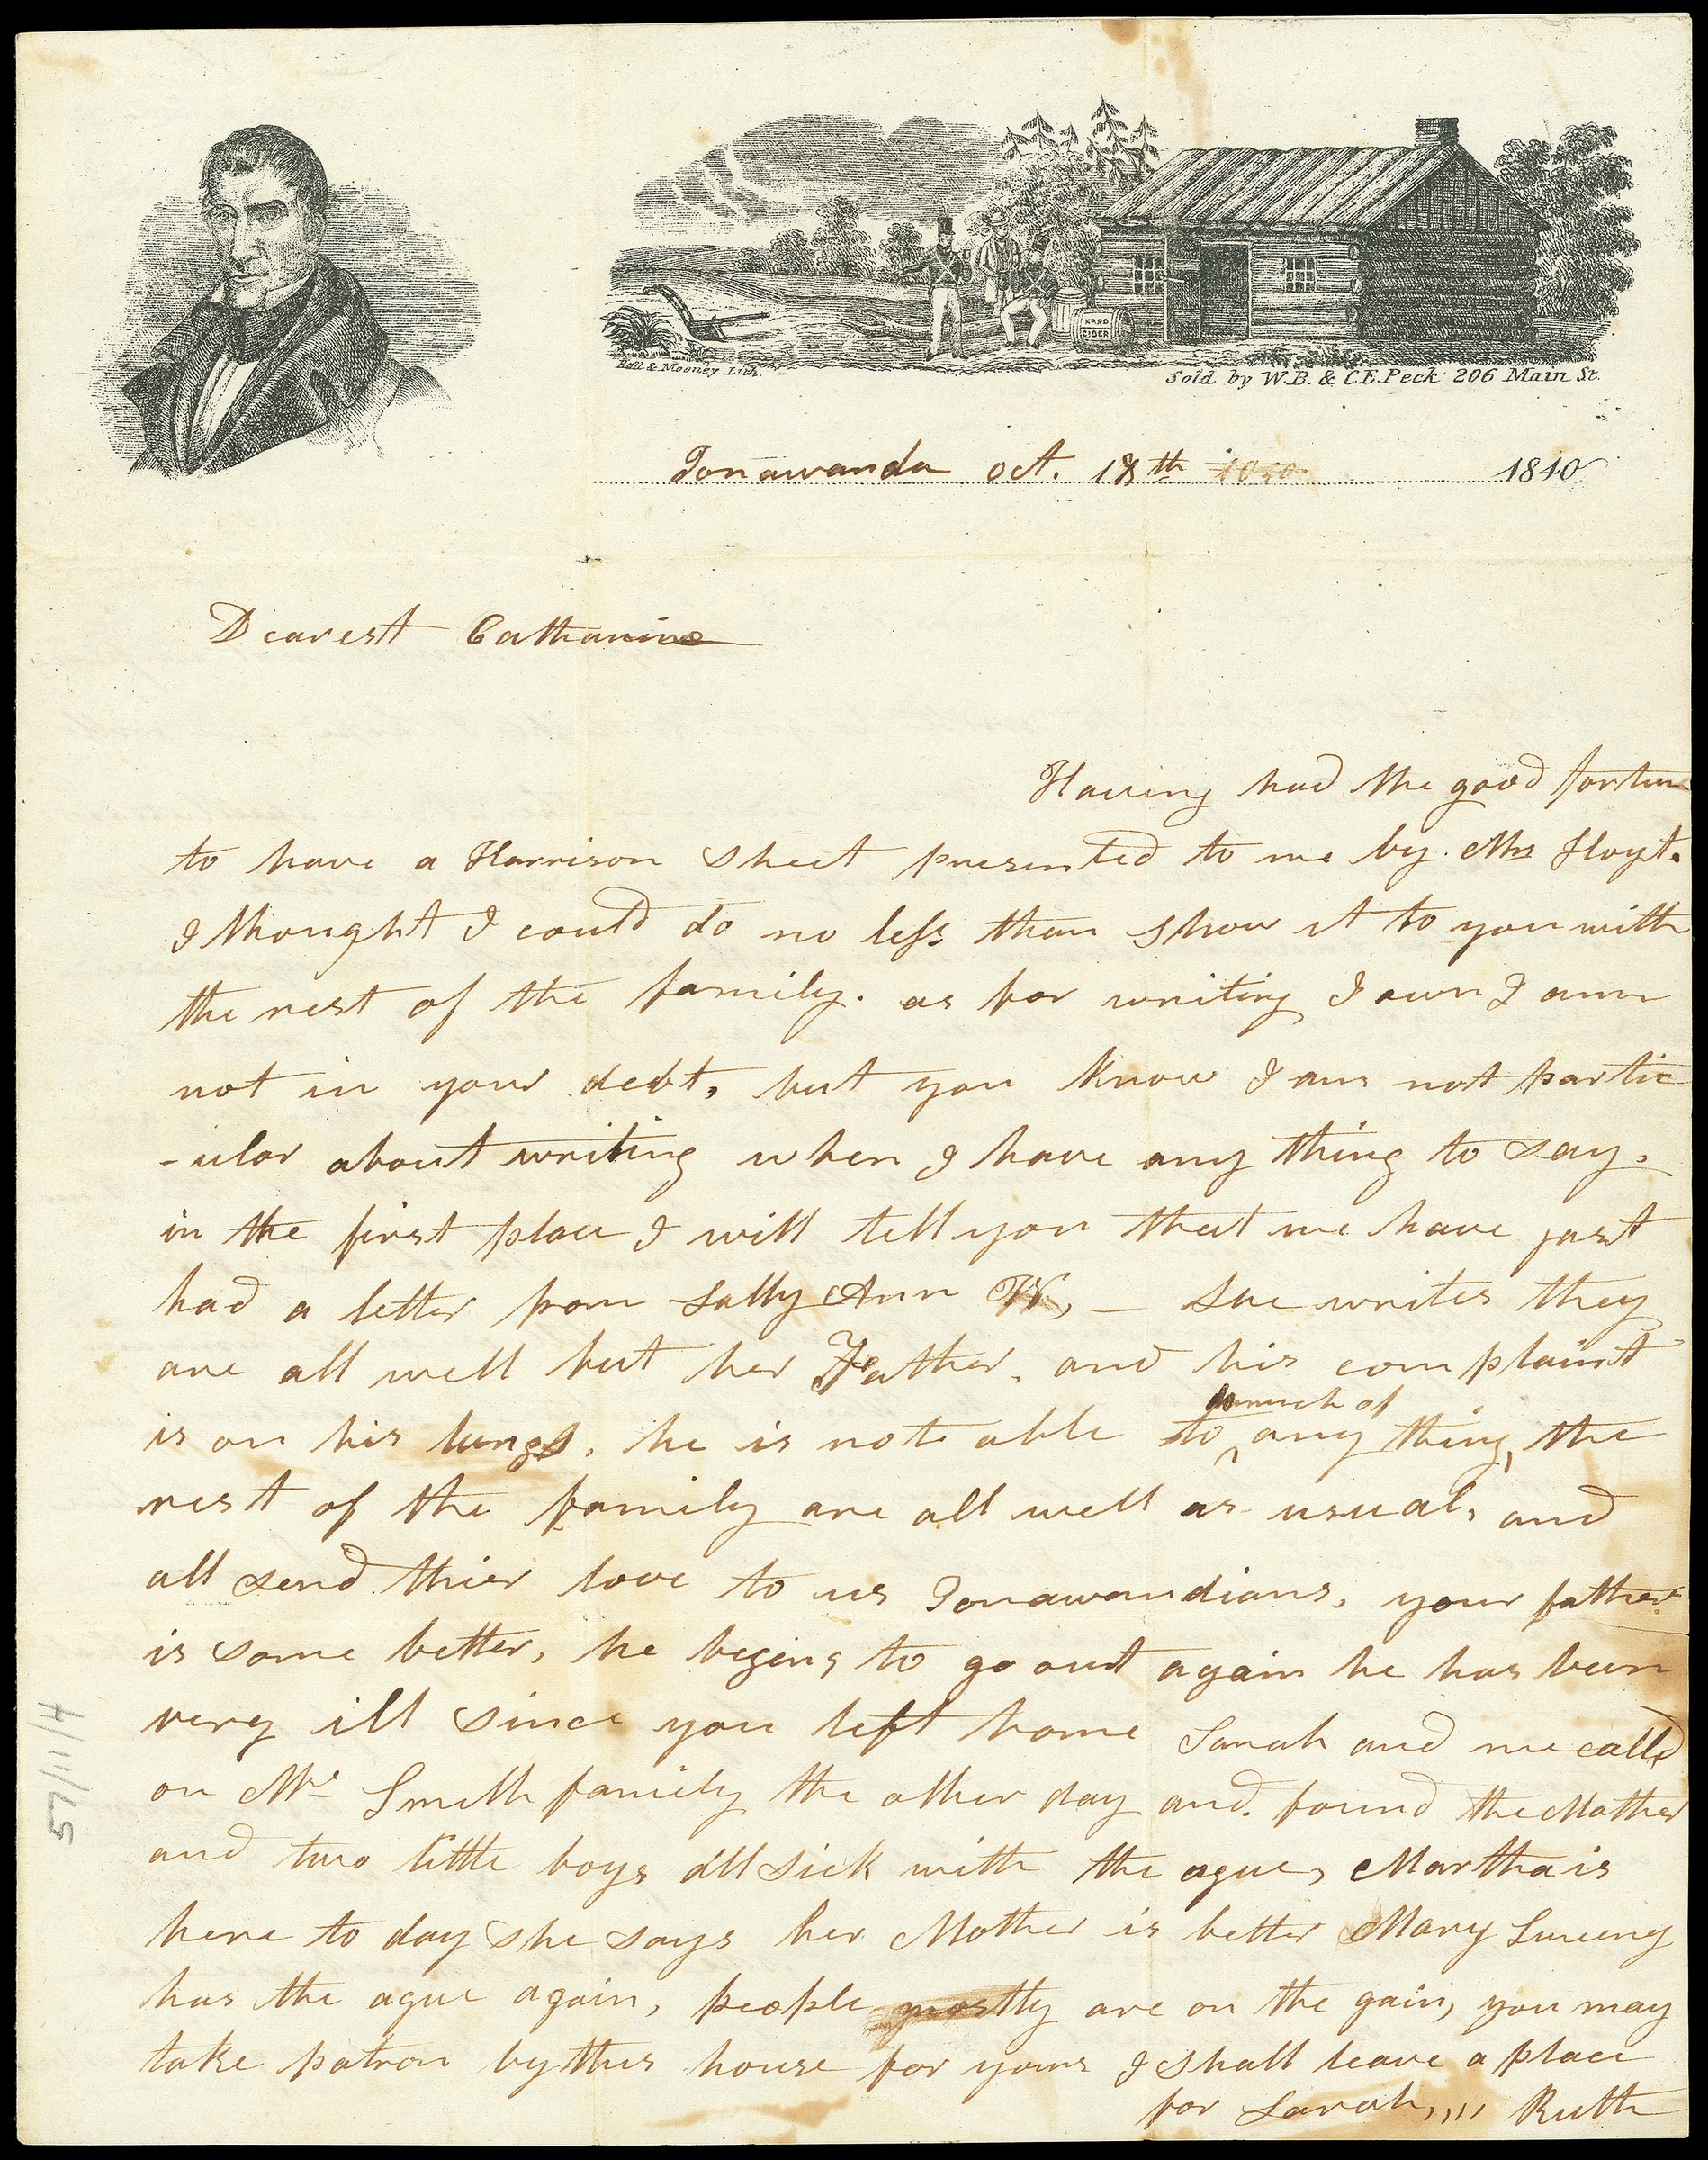 HARD CIDER
Hall & Mooney Lith.
Sold by W.B. & C.E. Peck 206 Main St.
Tonawanda Oct. 18th 1840
Dearest Catharine
Having had the good fortune
to have a Harrison sheet presented to me by Mrs Hoyt.
I thought I could do no less than show it to you with
the rest of the family. as for writing I own I am
not in your debt, but you know I am not partic
-ular about writing when I have any thing to say.
in the first place I will tell you that we have just
had a letter from Sally Ann W, — she writes they
are all well but her Father, and his complaint
is on his lungs, he is not able to much of any thing, the
rest of the family are all well as usual, and
all send thier love to us Tonawandians, your father
is some better, he begins to go out again he has been
very ill since you left home Sarah and me calld
on Mrs Smith family the other day and found the Mother
and two little boys all sick with the ague, Martha is
here to day she says her Mother is better Mary Sweeny
has the ague again, people mostly are on the gain, you may
take patron by this house for yours I shall leave a place
for Sarah,,,, Ruth
57/11/4